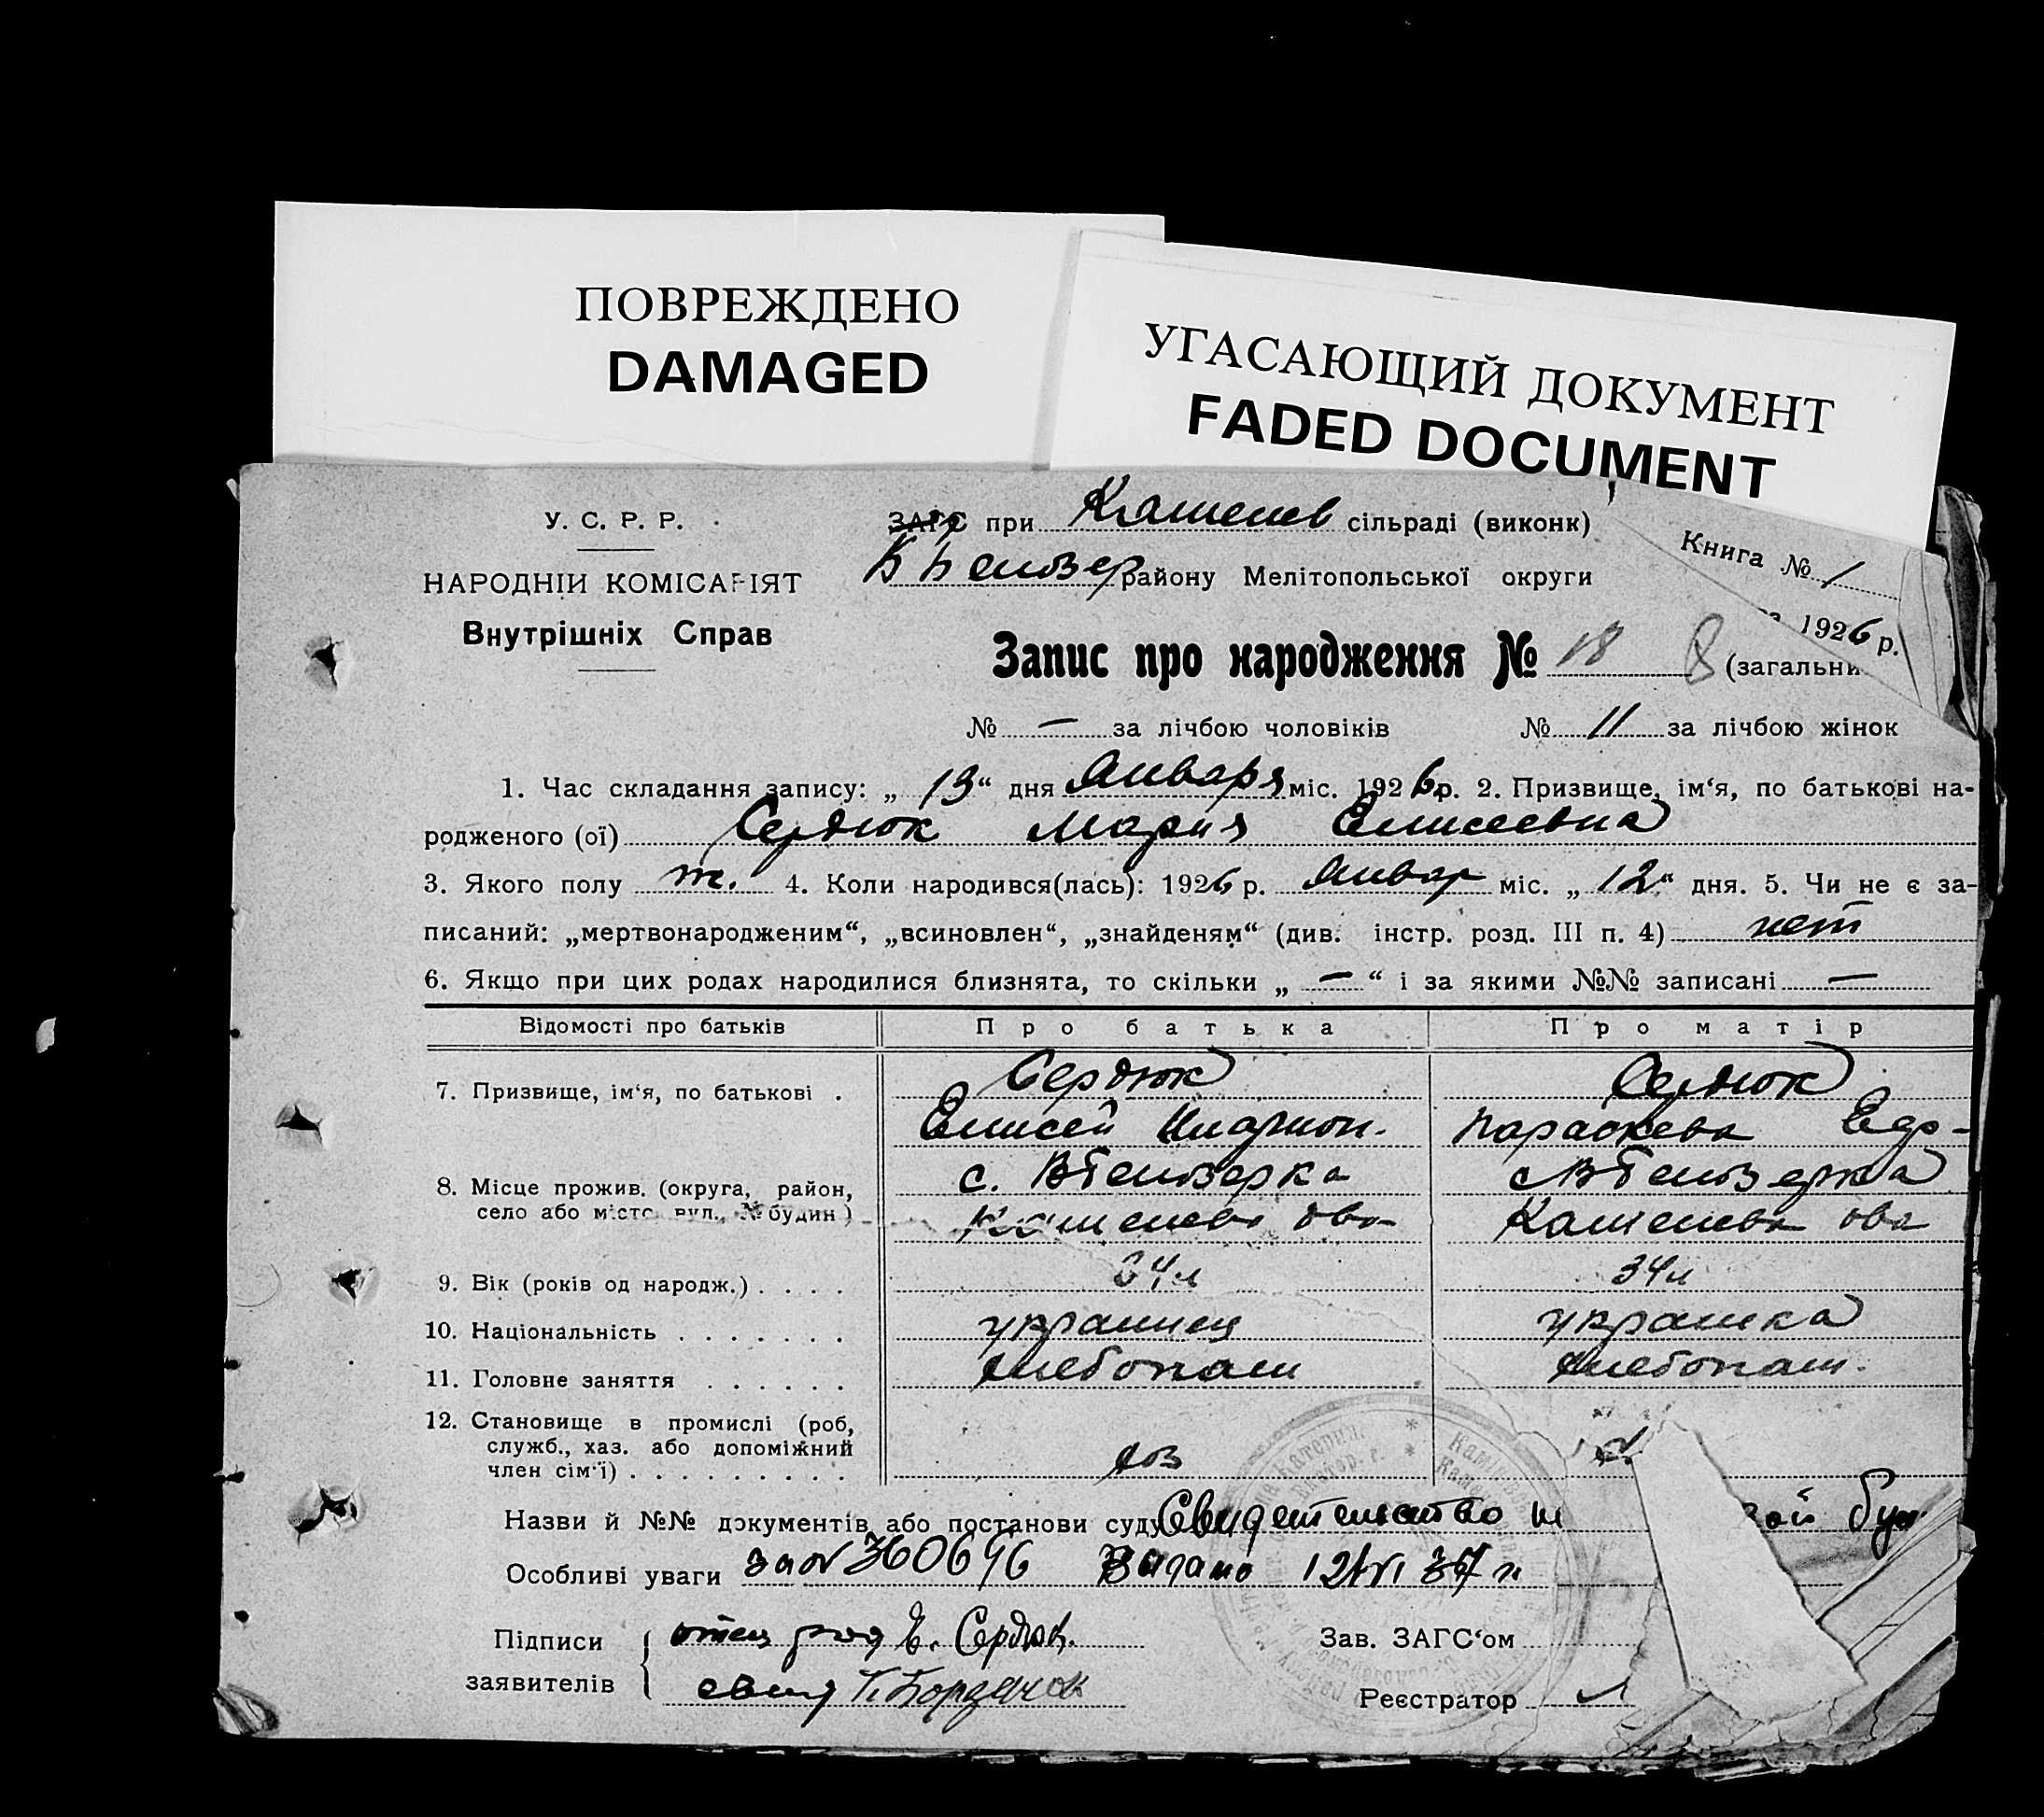 ПОВРЕЖДЕНО
DAMAGED
УГАСАЮЩИЙ ДОКУМЕНТ
FADED DOCUMENT
У. С. Р. Р.
НАРОДНІЙ КОМІСАРІЯТ
Внутрішніх Справ
ЗАГС при сільраді (виконк)
району Мелітопольської округи
Книга № 1
1926 р.
Запис про народження № 18 (загальни
№ — за лічбою чоловіків № 11 за лічбою жінок
1. Час складання запису: „ 13 “ дня Января міс. 1926 р. 2. Призвище, ім‘я, по батькові на-
родженого (ої) Сердюк Мария Елисеевна
3. Якого полу ж. 4. Коли народився(лась): 1926 р. Январ міс. „ 12 “ дня. 5. Чи не є за-
писаний: „мертвонародженим“, „всиновлен“, „знайденям“ (див. інстр. розд. III п. 4) нет
6. Якщо при цих родах народилися близнята, то скільки „ — “ і за якими №№ записані —
Відомості про батьків Про батька Про матір
7. Призвище, ім‘я, по батькові . Сердюк Сердюк
Елисей Иларион. Параскева
8. Місце прожив. (округа, район,
село або місто, вул., № будин)
с. с.
9. Вік (років од народж.) . . . . 34 л 34 л
10. Національність . . . . . . . украинец украинка
11. Головне заняття . . . . . . хлебопаш хлебопаш.
12. Становище в промислі (роб,
служб., хаз. або допоміжний
член сім‘ї) . . . . . . . . . хоз
Назви й №№ документів або постанови суду Свидетельство
Особливі уваги за № 360696 Видано 12/VI 37 г
Підписи
заявителів
отец Е. Сердюк
свид
Зав. ЗАГС‘ом
Реєстратор